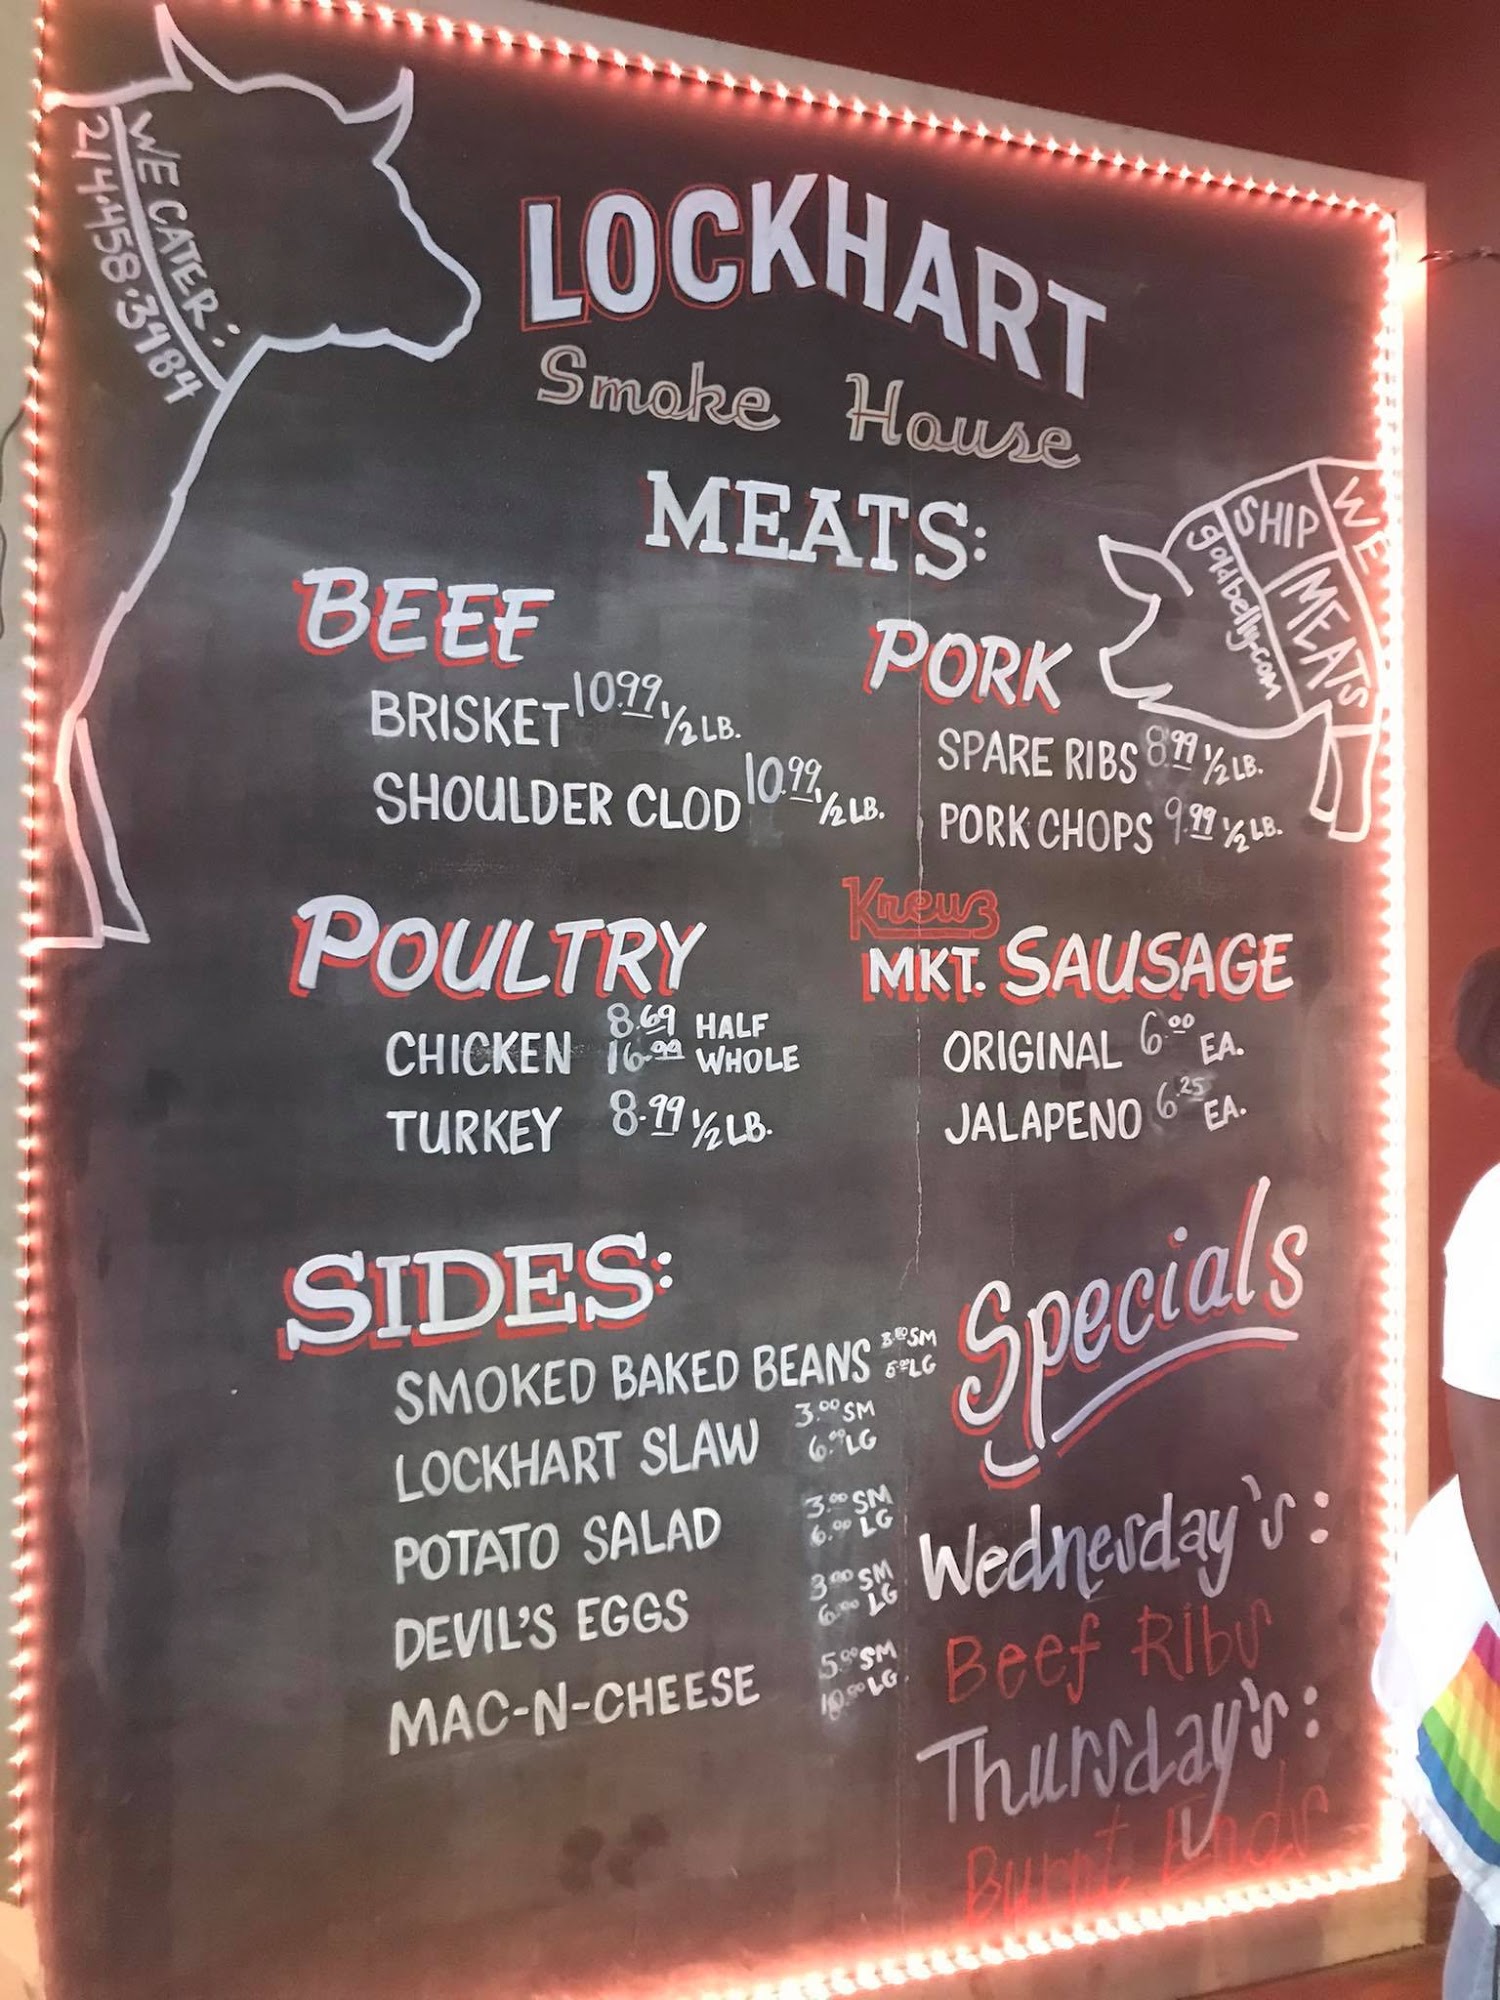 WE CATER:
214.458.3484
LOCKHART
Smoke House
MEATS:
WE
SHIP
MEATS
goldbelly.com
BEEF
BRISKET 10.99 1/2 LB.
SHOULDER CLOD 10.99 1/2 LB.
PORK
SPARE RIBS 8.99 1/2 LB.
PORK CHOPS 9.99 1/2 LB.
POULTRY
CHICKEN 8.69 HALF
16.99 WHOLE
TURKEY 8.99 1/2 LB.
Kreuz
MKT. SAUSAGE
ORIGINAL 6.00 EA.
JALAPENO 6.25 EA.
SIDES:
SMOKED BAKED BEANS SM
LG
LOCKHART SLAW 3.00 SM
6.00 LG
POTATO SALAD 3.00 SM
6.00 LG
DEVIL'S EGGS 3.00 SM
6.00 LG
MAC-N-CHEESE SM
LG.
Specials
Wednesday's:
Beef Ribs
Thursday's:
Burnt Ends